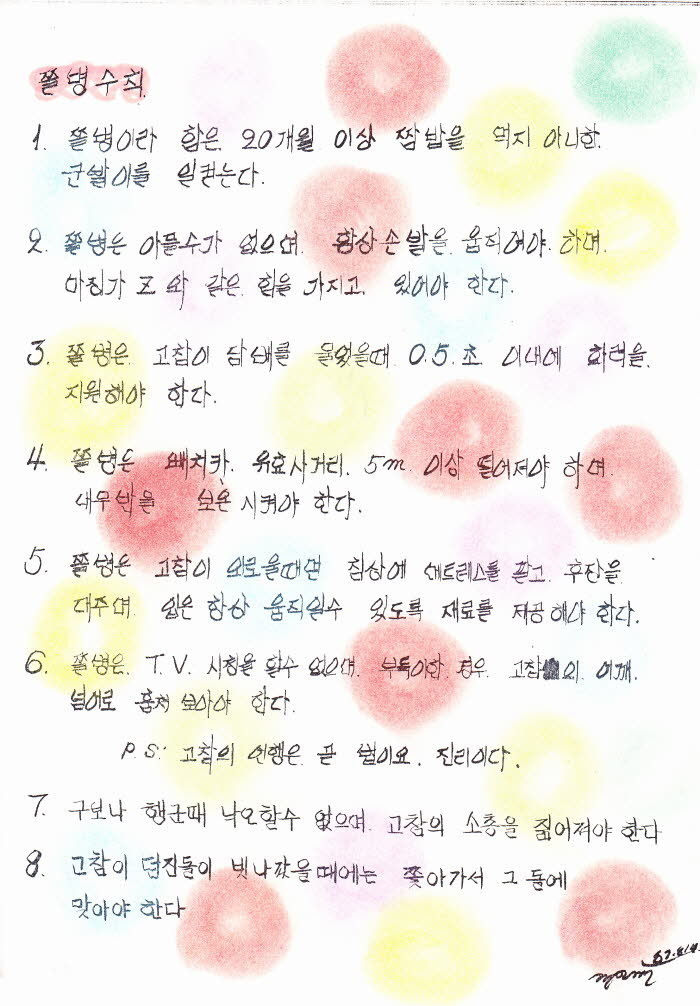 쫄병수칙
1. 쫄병이라 함은 20개월 이상 짬밥을 먹지 아니한
군발이를 일컫는다.
2. 쫄병은 아플수가 없으며 항상 손발을 움직여야 하며
마징가 Z와 같은 힘을 가지고 있어야 한다.
3. 쫄병은 고참이 담배를 물었을때 0.5.초 이내에 화력을
지원해야 한다.
4. 쫄병은 빼치카. 유효사거리. 5m 이상 떨어져야 하며
내무박을 보온 시켜야 한다.
5. 쫄병은 고참이 외로울때면 침상에 매트리스를 깔고 후장을
대주며 입은 항상 움직일수 있도록 재료를 제공해야 한다.
6. 쫄병은 T.V. 시청을 할수 없으며 부득이한 경우 고참의 어깨
넘어로 훔쳐 보아야 한다.
P.S: 고참의 언행은 곧 법이요. 진리이다.
7. 구보나 행군때 낙오할수 없으며 고참의 소총을 짊어져야 한다
8. 고참이 던진돌이 빗나갔을때에는 쫓아가서 그 돌에
맞아야 한다